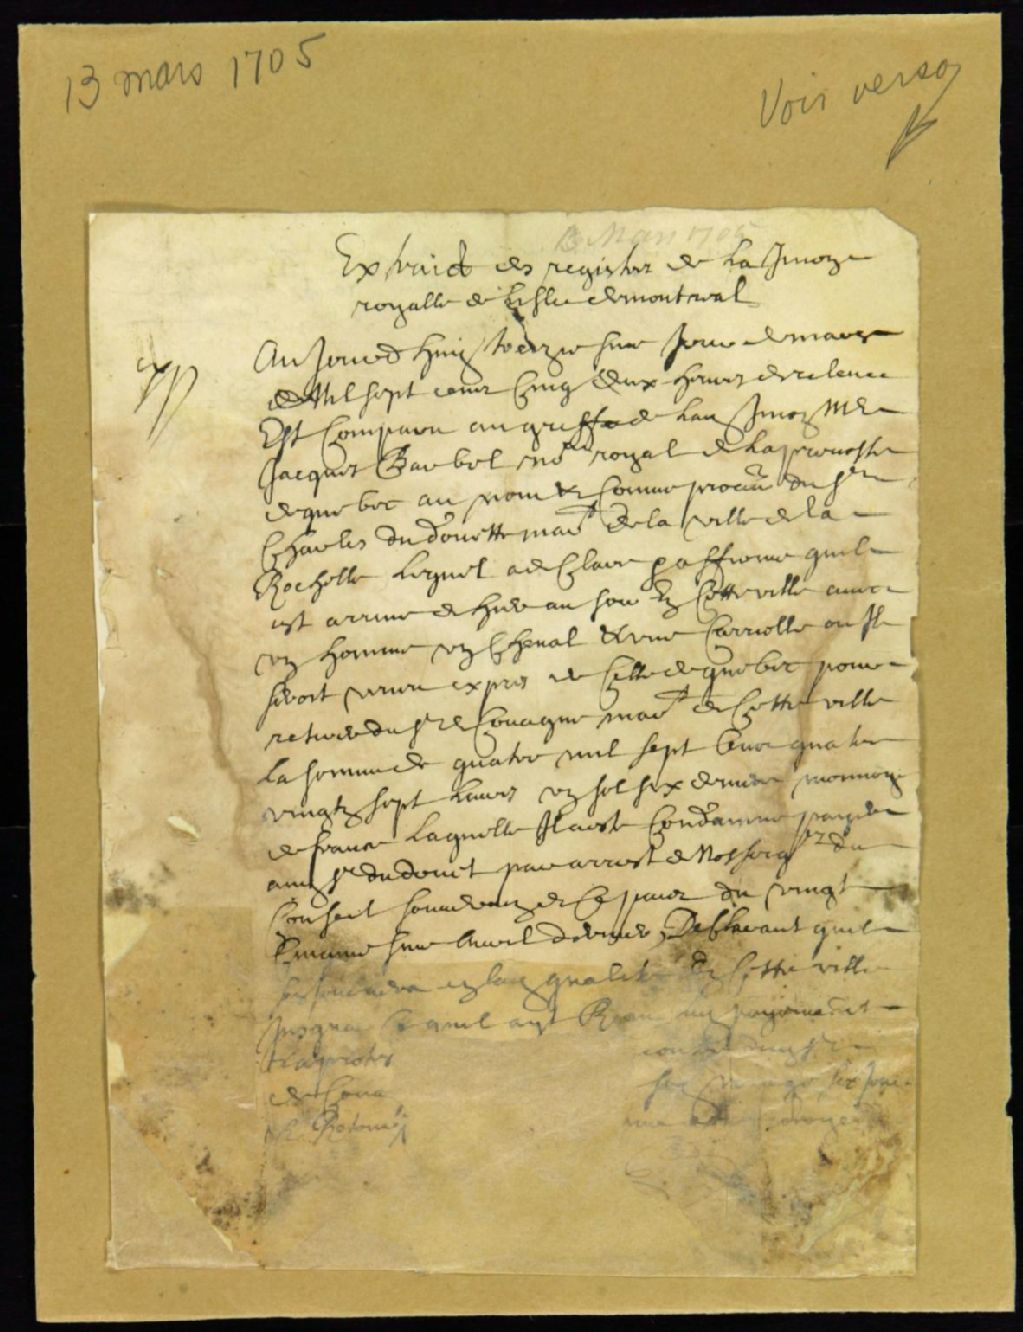 13 mars 1705
Voir verso
13 Mars 1705
Extraict des registres de La Jurison
royalle de Lisle de montreal
Aujourd'huy treiziesme Jour de mars
de Mil sept cens Cinq deux heures de relevée
Est Comparu au greffe de Lad Juron Me
Jacques Barbel nore royal de La prevosté
de quebec au nom & Comme procur du Sr
Charles du douette mard de la ville de la
Rochelle Lequel a declaré & affirmé quil
est arrivé de hier au soir En Cette ville avec
un homme un Cheval & une Carriolle ou Il
seroit venu expres de Celle de quebec pour
retirer du Sr de Couagne mard de Cette ville
La somme de quatre mil sept Cens quatre
vingts sept Livres un sol six deniers monnoye
de france Laquelle Il a esté Condamné payer
aud Sr du douet par arrest de Nosseigrs du
Conseil souverain de Ce pais du vingt
Avril dernier, Declarant quil
en lad qualité En Cette ville
Jusqua Ce quil ayt Receu payement
de Coua